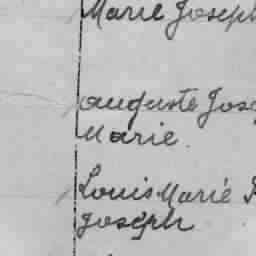 Marie Joseph
Auguste Jos
Marie.
Louis Marie
Joseph